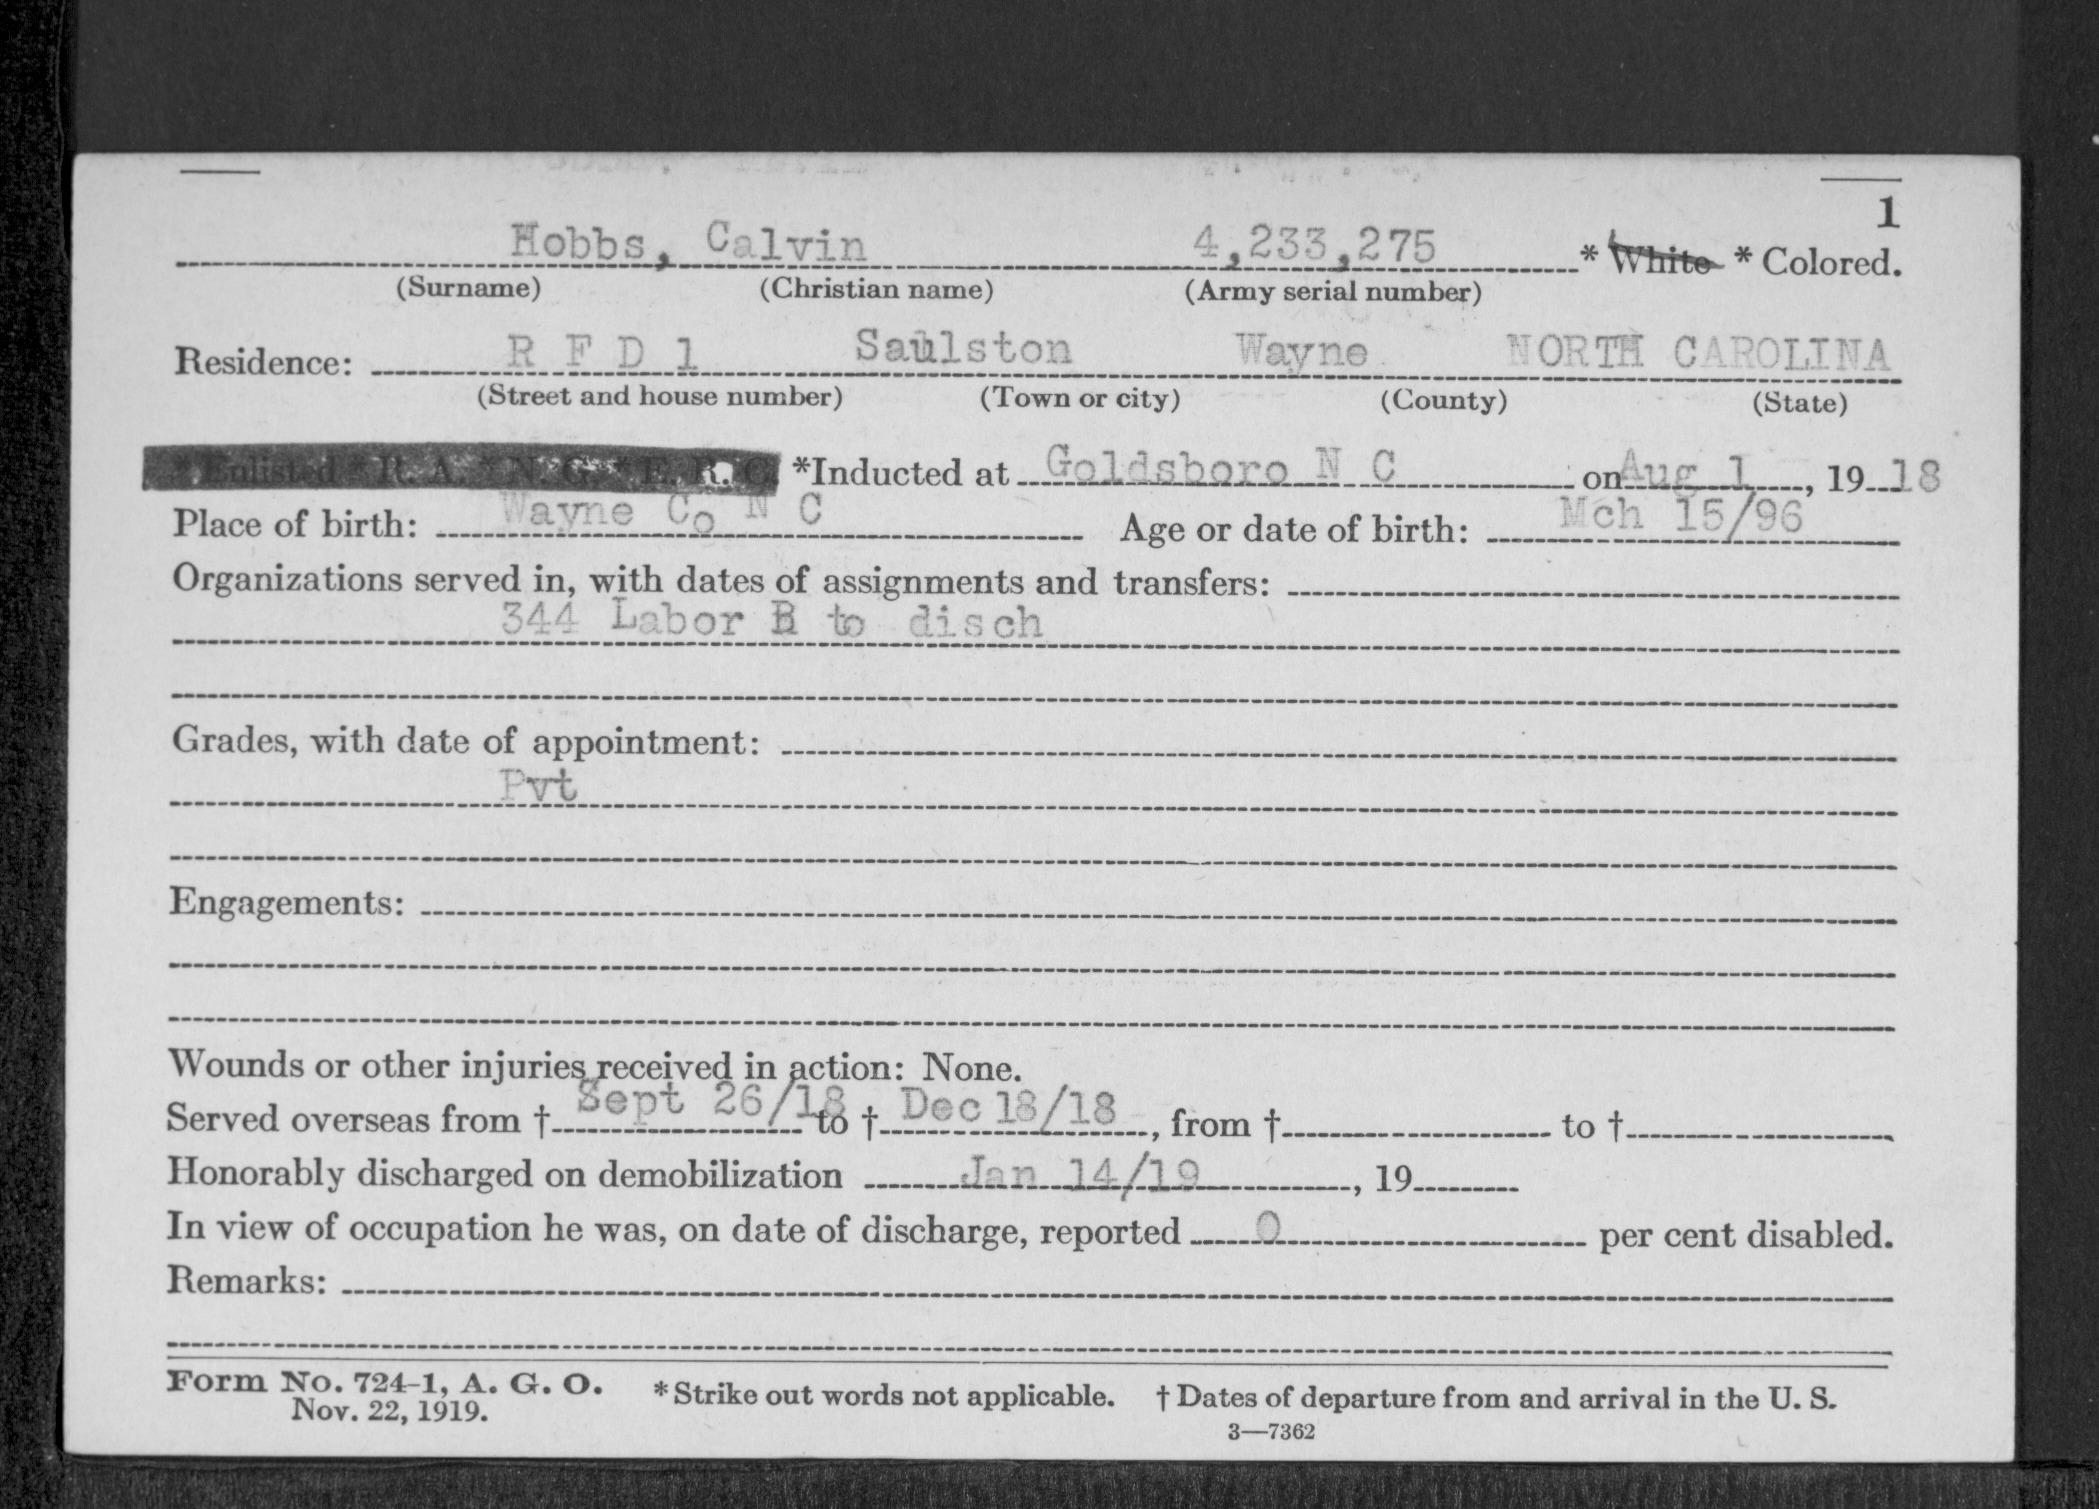 1
Hobbs, Calvin 4,233,275 * White * Colored.
(Surname) (Christian name) (Army serial number)
Residence: R F D 1 Saulston Wayne NORTH CAROLINA
(Street and house number) (Town or city) (County) (State)
*Enlisted *R. A. *N. G. *E. R. C. *Inducted at Goldsboro N C on Aug 1, 1918
Place of birth: Wayne Co N C Age or date of birth: Mch 15/96
Organizations served in, with dates of assignments and transfers:
344 Labor B to disch
Grades, with date of appointment:
Pvt
Engagements:
Wounds or other injuries received in action: None.
Served overseas from † Sept 26/18 to † Dec 18/18, from † to †
Honorably discharged on demobilization Jan 14/19, 19
In view of occupation he was, on date of discharge, reported 0 per cent disabled.
Remarks:
Form No. 724-1, A. G. O. *Strike out words not applicable. † Dates of departure from and arrival in the U. S.
Nov. 22, 1919.
3—7362